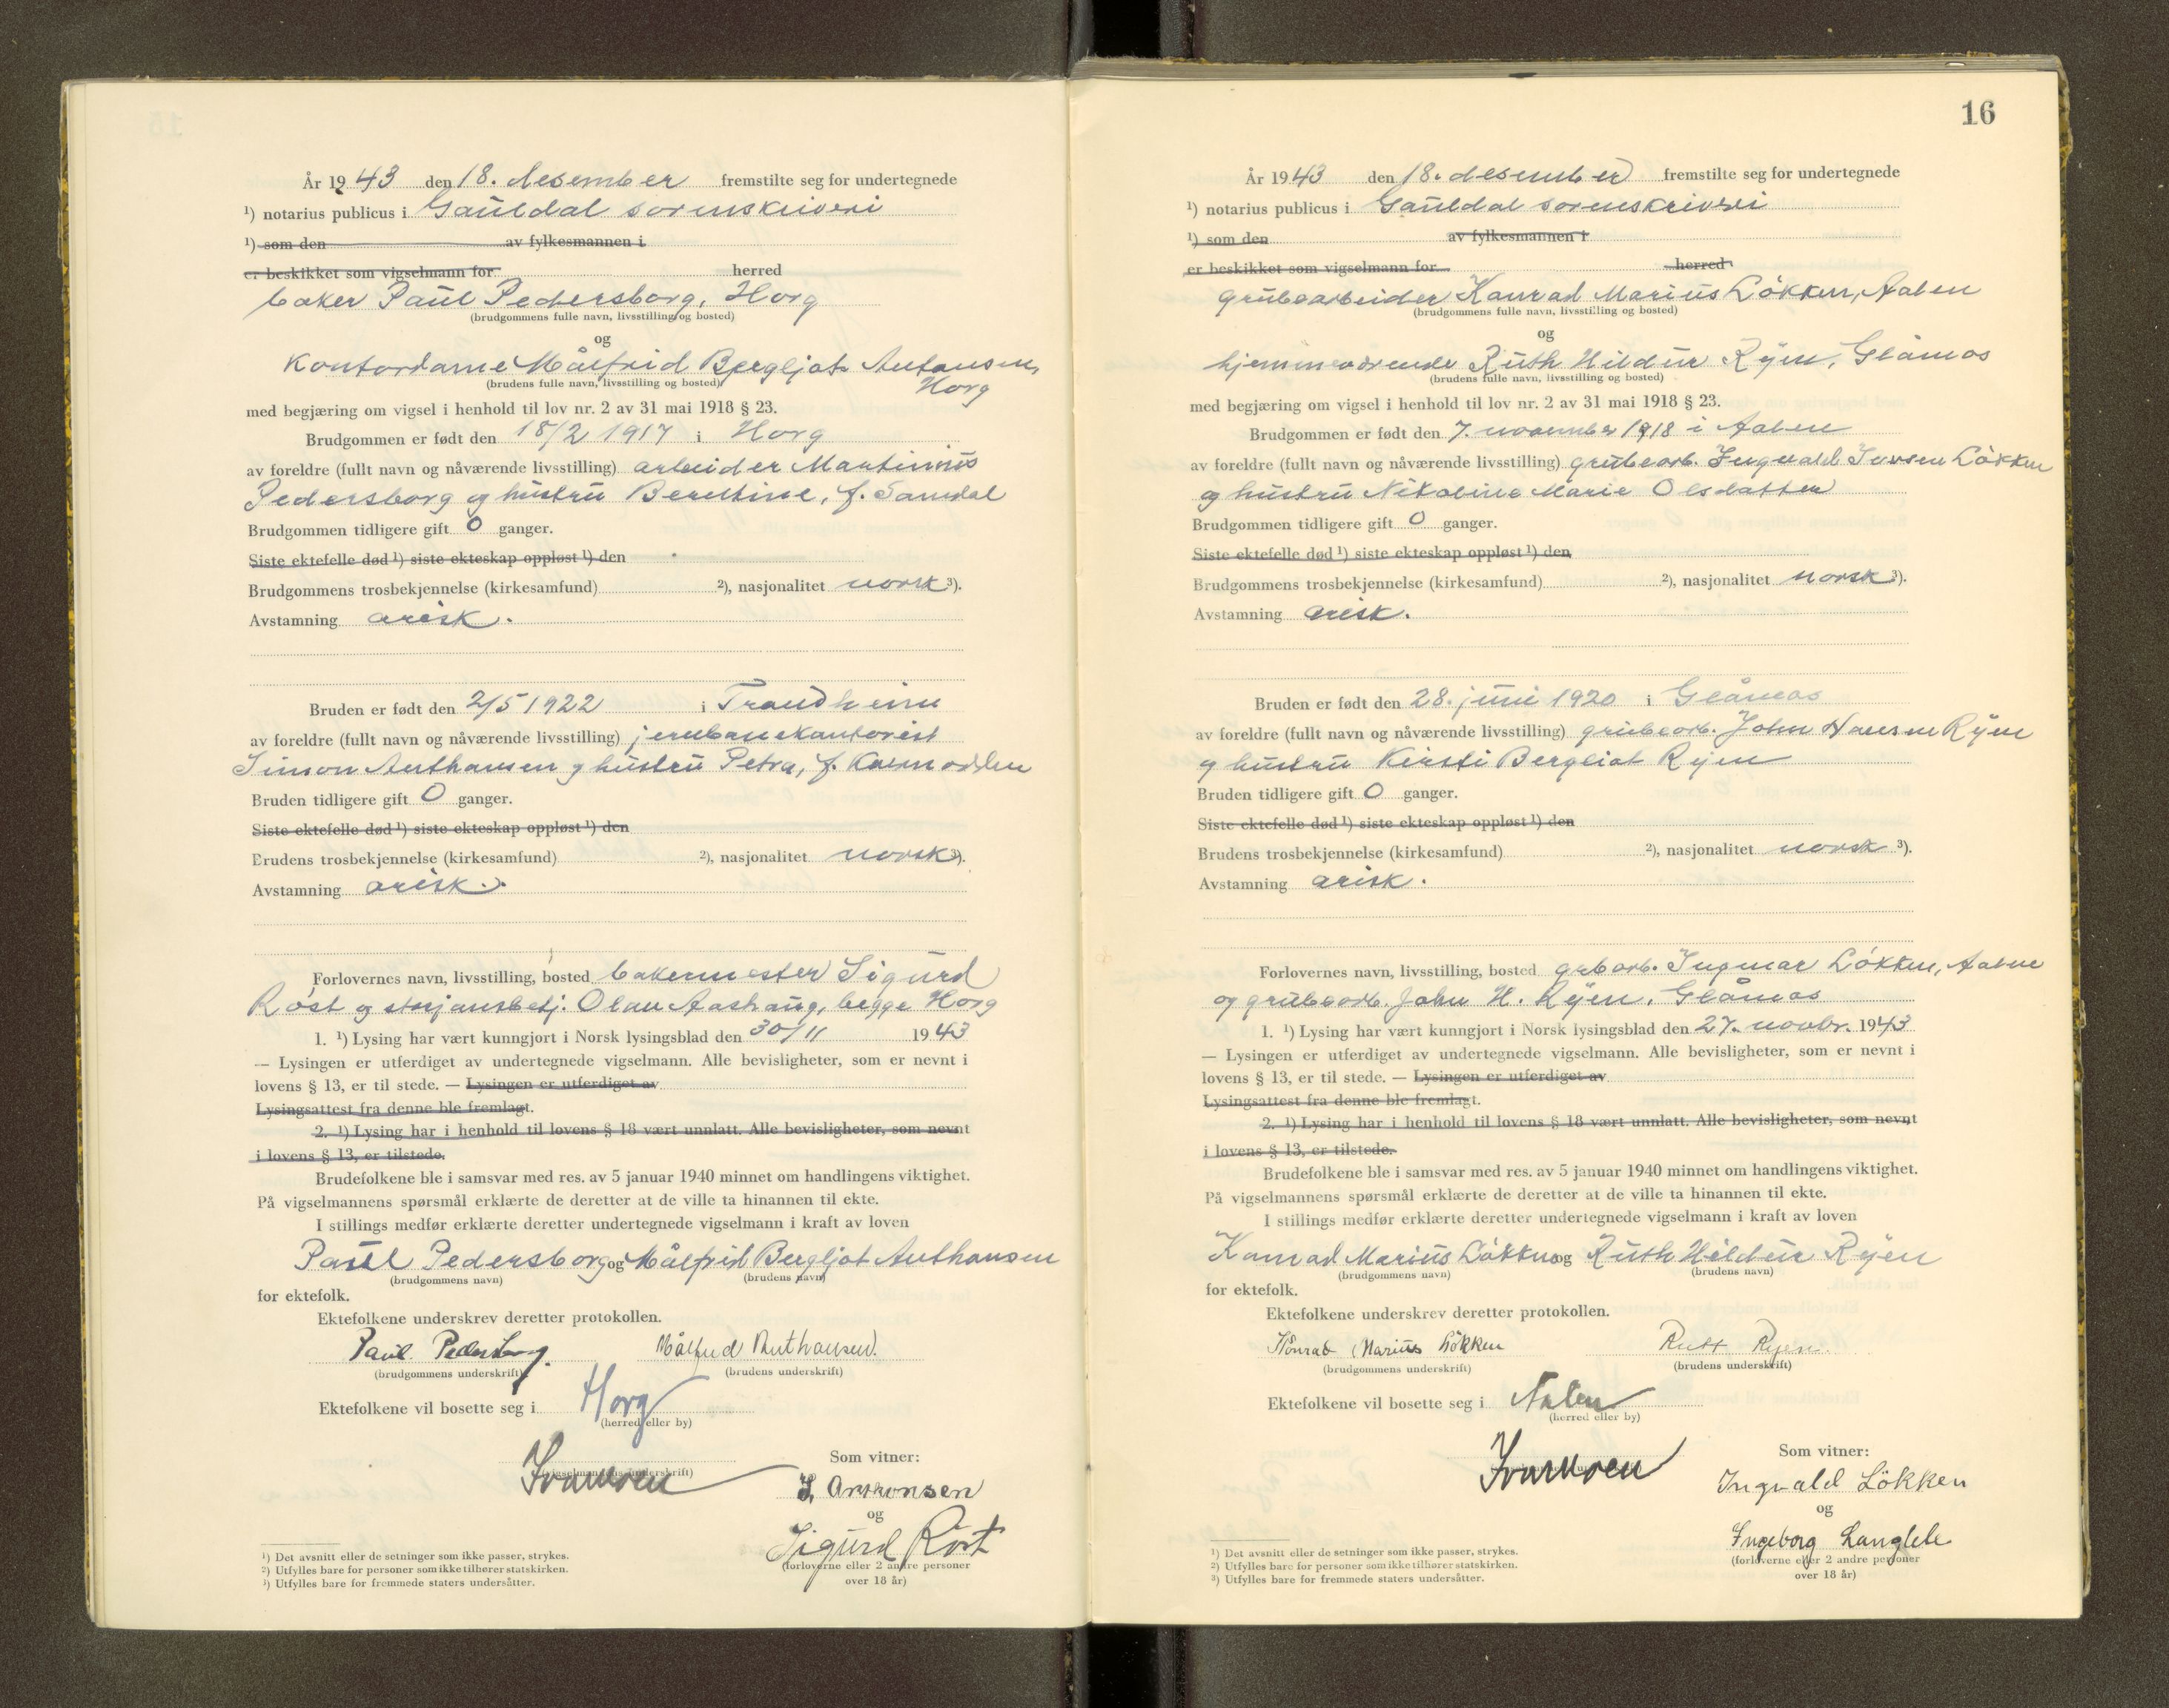 År 1943 den 18. desember fremstilte seg for undertegnede
¹) notarius publicus i Gauldal sorenskriveri
¹) som den av fylkesmannen i
er beskikket som vigselmann for herred
baker Paul Pedersborg, Horg
(brudgommens fulle navn, livsstilling og bosted)
og
Kontordame Målfrid Bergljot Anthonsen,
(brudens fulle navn, livsstilling og bosted)
Horg
med begjæring om vigsel i henhold til lov nr. 2 av 31 mai 1918 § 23.
Brudgommen er født den 18/2 1917 i Horg
av foreldre (fullt navn og nåværende livsstilling) arbeider Martinius
Pedersborg og hustru Berntine, f. Samdal
Brudgommen tidligere gift 0 ganger.
Siste ektefelle død ¹) siste ekteskap oppløst ¹) den
Brudgommens trosbekjennelse (kirkesamfund) ²), nasjonalitet norsk ³).
Avstamning arisk.
Bruden er født den 2/5 1922 i Trondheim
av foreldre (fullt navn og nåværende livsstilling) jernbanekontorist
Simon Anthonsen og hustru Petra, f.
Bruden tidligere gift 0 ganger.
Siste ektefelle død ¹) siste ekteskap oppløst ¹) den
Brudens trosbekjennelse (kirkesamfund) ²), nasjonalitet norsk ³).
Avstamning arisk.
Forlovernes navn, livsstilling, bosted bakermester Sigurd
Röst og Olav Aashaug, begge Horg
1. ¹) Lysing har vært kunngjort i Norsk lysingsblad den 30/11 1943
— Lysingen er utferdiget av undertegnede vigselmann. Alle bevisligheter, som er nevnt i
lovens § 13, er til stede. — Lysingen er utferdiget av
Lysingsattest fra denne ble fremlagt.
2. ¹) Lysing har i henhold til lovens § 18 vært unnlatt. Alle bevisligheter, som nevnt
i lovens § 13, er tilstede.
Brudefolkene ble i samsvar med res. av 5 januar 1940 minnet om handlingens viktighet.
På vigselmannens spørsmål erklærte de deretter at de ville ta hinannen til ekte.
I stillings medfør erklærte deretter undertegnede vigselmann i kraft av loven
Paul Pedersborg og Målfrid Bergljot Anthonsen
(brudgommens navn) (brudens navn)
for ektefolk.
Ektefolkene underskrev deretter protokollen.
Paul Pedersborg. Målfrid Anthonsen.
(brudgommens underskrift) (brudens underskrift)
Ektefolkene vil bosette seg i Horg
(herred eller by)
Som vitner:
(vigselmannens underskrift)
S. Anthonsen
og
Sigurd Röst
(forloverne eller 2 andre personer
over 18 år)
¹) Det avsnitt eller de setninger som ikke passer, strykes.
²) Utfylles bare for personer som ikke tilhører statskirken.
³) Utfylles bare for fremmede staters undersåtter.
16
År 1943 den 18. desember fremstilte seg for undertegnede
¹) notarius publicus i Gauldal sorenskriveri
¹) som den av fylkesmannen i
er beskikket som vigselmann for herred
grubearbeider Konrad Marius Lökken, Aalen
(brudgommens fulle navn, livsstilling og bosted)
og
hjemmeværende Ruth Hildur Ryen, Glåmos
(brudens fulle navn, livsstilling og bosted)
med begjæring om vigsel i henhold til lov nr. 2 av 31 mai 1918 § 23.
Brudgommen er født den 7. november 1918 i Aalen
av foreldre (fullt navn og nåværende livsstilling) grubearb. Ingvald Iversen Lökken
og hustru Nikoline Marie Olsdatter
Brudgommen tidligere gift 0 ganger.
Siste ektefelle død ¹) siste ekteskap oppløst ¹) den
Brudgommens trosbekjennelse (kirkesamfund) ²), nasjonalitet norsk ³).
Avstamning arisk.
Bruden er født den 28. juni 1920 i Glåmos
av foreldre (fullt navn og nåværende livsstilling) grubearb. John Hansen Ryen
og hustru Kirsti Bergliot Ryen
Bruden tidligere gift 0 ganger.
Siste ektefelle død ¹) siste ekteskap oppløst ¹) den
Brudens trosbekjennelse (kirkesamfund) ²), nasjonalitet norsk ³).
Avstamning arisk.
Forlovernes navn, livsstilling, bosted grb.arb. Ingmar Lökken, Aalen
og grubearb. John H. Ryen, Glåmos
1. ¹) Lysing har vært kunngjort i Norsk lysingsblad den 27. novbr. 1943
— Lysingen er utferdiget av undertegnede vigselmann. Alle bevisligheter, som er nevnt i
lovens § 13, er til stede. — Lysingen er utferdiget av
Lysingsattest fra denne ble fremlagt.
2. ¹) Lysing har i henhold til lovens § 18 vært unnlatt. Alle bevisligheter, som nevnt
i lovens § 13, er tilstede.
Brudefolkene ble i samsvar med res. av 5 januar 1940 minnet om handlingens viktighet.
På vigselmannens spørsmål erklærte de deretter at de ville ta hinannen til ekte.
I stillings medfør erklærte deretter undertegnede vigselmann i kraft av loven
Konrad Marius Lökken og Ruth Hildur Ryen
(brudgommens navn) (brudens navn)
for ektefolk.
Ektefolkene underskrev deretter protokollen.
Konrad Marius Lökken Ruth Ryen.
(brudgommens underskrift) (brudens underskrift)
Ektefolkene vil bosette seg i Aalen
(herred eller by)
Som vitner:
Ingvald Lökken
og
Ingeborg Langlete
(forloverne eller 2 andre personer
over 18 år)
¹) Det avsnitt eller de setninger som ikke passer, strykes.
²) Utfylles bare for personer som ikke tilhører statskirken.
³) Utfylles bare for fremmede staters undersåtter.